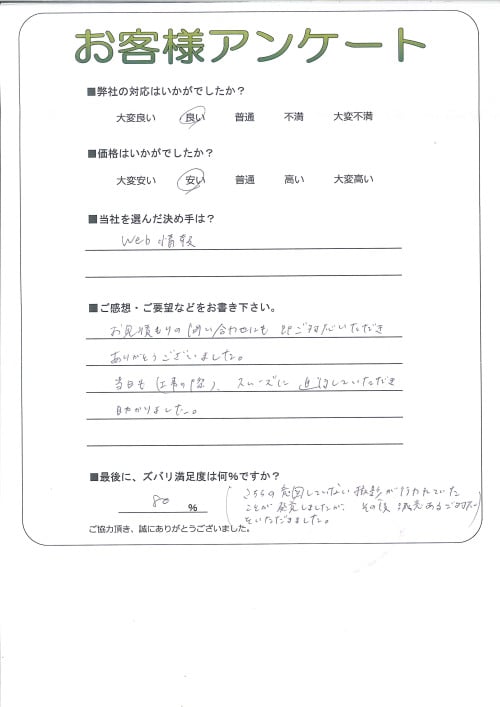 お客様アンケート
■弊社の対応はいかがでしたか？
大変良い 良い 普通 不満 大変不満
■価格はいかがでしたか？
大変安い 安い 普通 高い 大変高い
■当社を選んだ決め手は？
Web情報
■ご感想・ご要望などをお書き下さい。
お見積もりの問い合わせにも 即ご対応いただき
ありがとうございました。
当日も（工事の際）、スムーズに していただき
助かりました。
■最後に、ズバリ満足度は何％ですか？
80 ％
（こちらの意図していない が行われていた
ことが発覚しましたが、その後 誠意あるご対応
をいただきました。
ご協力頂き、誠にありがとうございました。